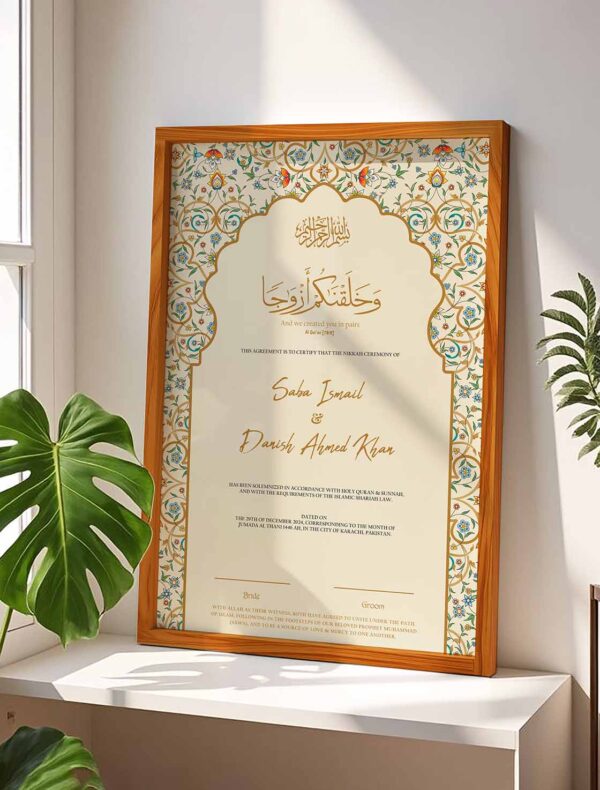 بسم الله الرحمن الرحيم
وَخَلَقْنَٰكُمْ أَزْوَٰجًا
And we created you in pairs
Al Qur'an [78:8]
THIS AGREEMENT IS TO CERTIFY THAT THE NIKKAH CEREMONY OF
Saba Ismail
&
Danish Ahmed Khan
HAS BEEN SOLEMNIZED IN ACCORDANCE WITH HOLY QURAN & SUNNAH,
AND WITH THE REQUIREMENTS OF THE ISLAMIC SHARIAH LAW.
DATED ON
THE 29TH OF DECEMBER 2024, CORRESPONDING TO THE MONTH OF
JUMADA AL THANI 1446 AH, IN THE CITY OF KARACHI, PAKISTAN.
Bride
Groom
WITH ALLAH AS THEIR WITNESS, BOTH HAVE AGREED TO UNITE UNDER THE PATH
OF ISLAM, FOLLOWING IN THE FOOTSTEPS OF OUR BELOVED PROPHET MUHAMMAD
(SAWA), AND TO BE A SOURCE OF LOVE & MERCY TO ONE ANOTHER.